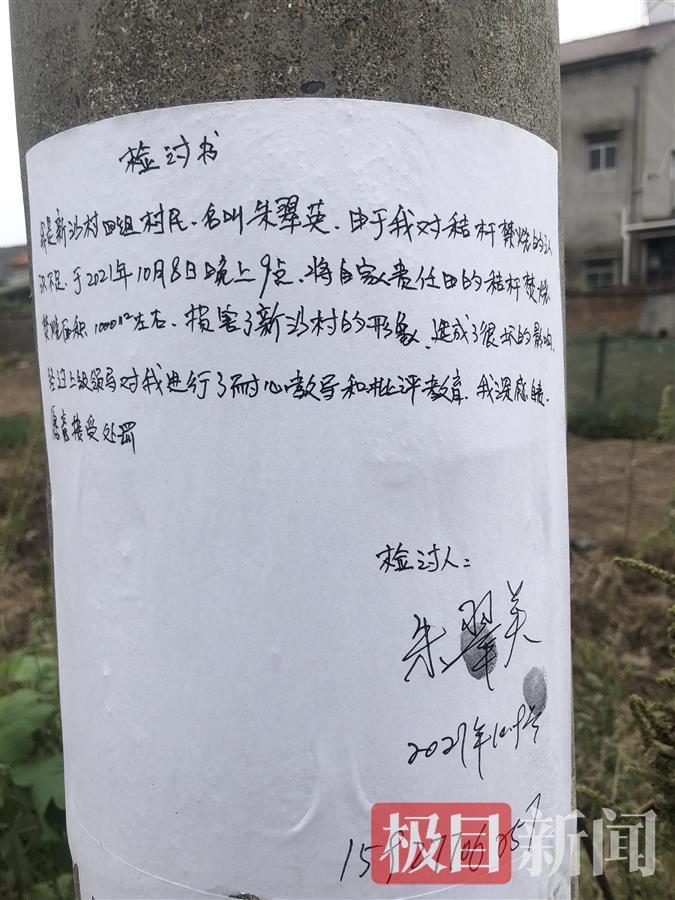 检讨书
我是新沙村四组村民、名叫朱翠英、由于我对秸秆焚烧的认
识不足、于2021年10月8日晚上9点、将自家责任田的秸秆焚烧
焚烧面积1000m²左右、损害了新沙村的形象、造成了很坏的影响、
经过上级领导对我进行了耐心教导和批评教育、我深感自责、
愿意接受处罚
检讨人:
朱翠英
2021年10.9号
极目新闻